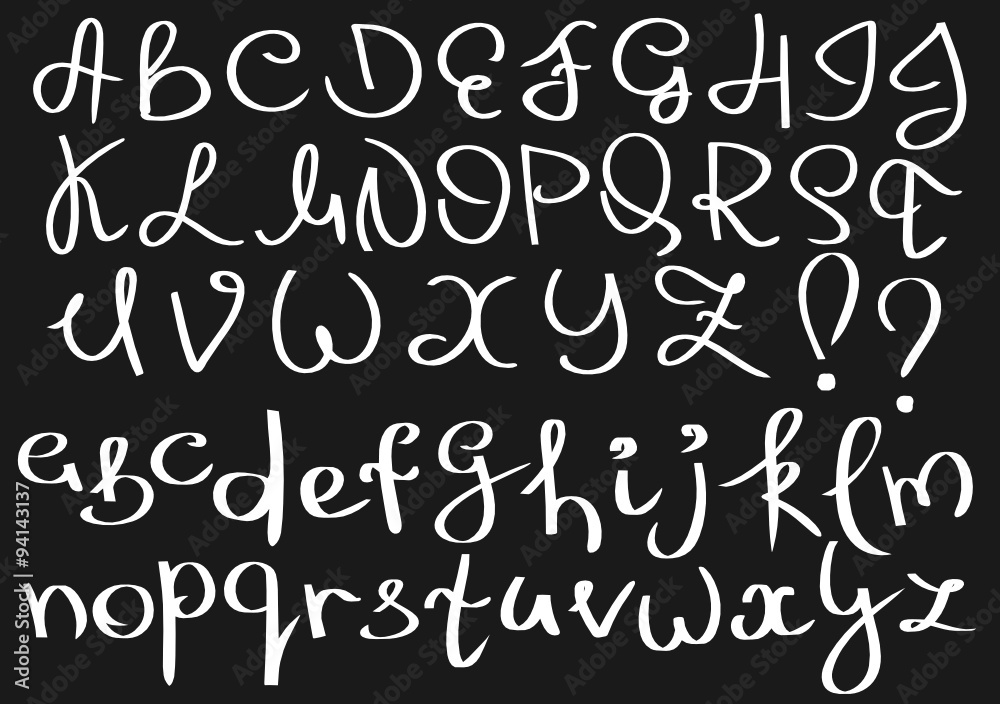 A B C D E F G H I J
K L M N O P Q R S T
U V W X Y Z ! ?
a b c d e f g h i j k l m
n o p q r s t u v w x y z
Adobe Stock | #94143137